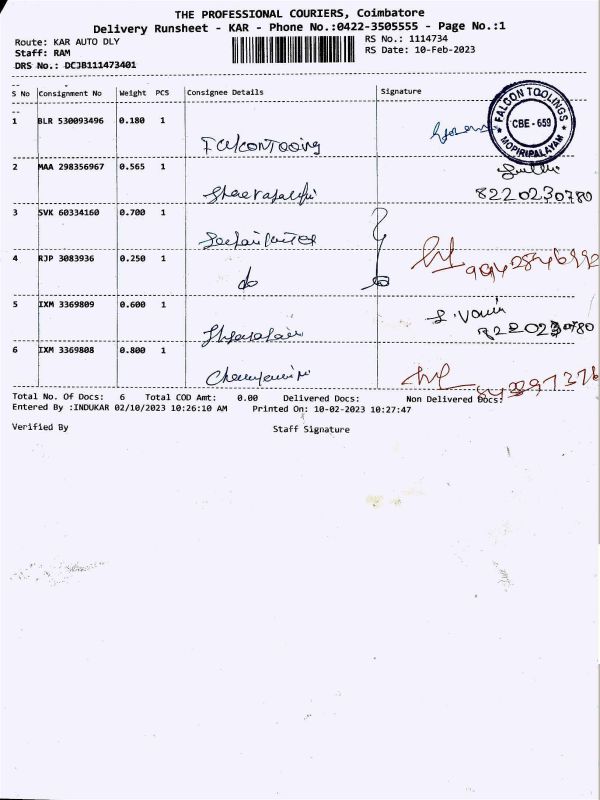 THE PROFESSIONAL COURIERS, Coimbatore
Delivery Runsheet - KAR - Phone No.:0422-3505555 - Page No.:1
Route: KAR AUTO DLY
RS No.: 1114734
Staff: RAM
RS Date: 10-Feb-2023
DRS No.: DCJB111473401
S No Consignment No Weight PCS Consignee Details Signature
FALCON TOOLINGS
CBE - 659
MOPIRIPALAYAM
1 BLR 530093496 0.180 1
FalconTooing
2 MAA 298356967 0.565 1
8220230780
3 SVK 60334160 0.700 1
4 RJP 3083936 0.250 1
do
5 IXM 3369809 0.600 1
8220230780
6 IXM 3369808 0.800 1
Total No. Of Docs: 6 Total COD Amt: 0.00 Delivered Docs: Non Delivered Docs:
Entered By :INDUKAR 02/10/2023 10:26:10 AM Printed On: 10-02-2023 10:27:47
Verified By Staff Signature